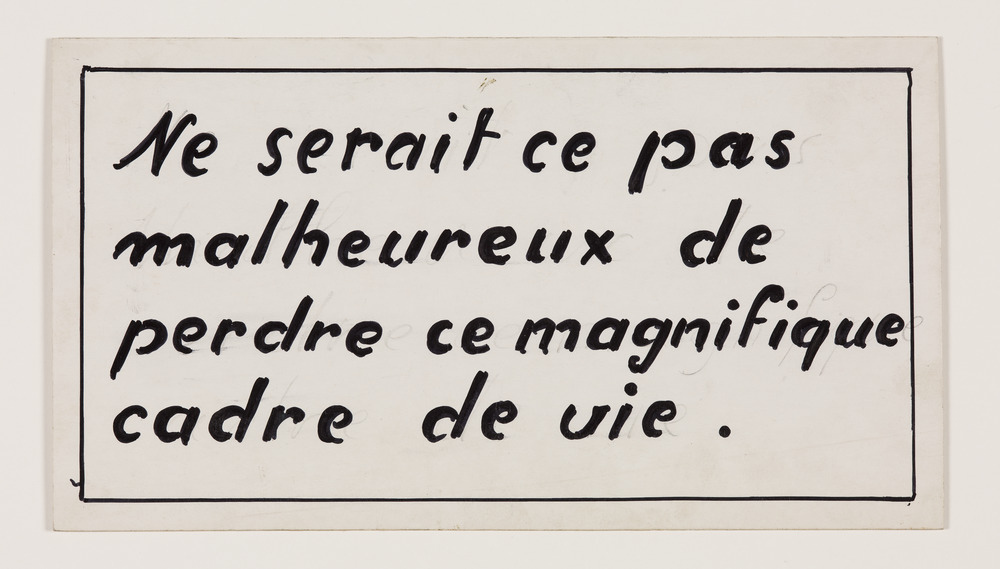 Ne serait ce pas
malheureux de
perdre ce magnifique
cadre de vie .